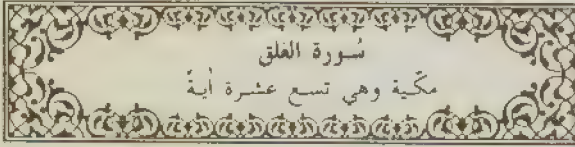 سورة العلق
مكّية وهي تسع عشرة أية